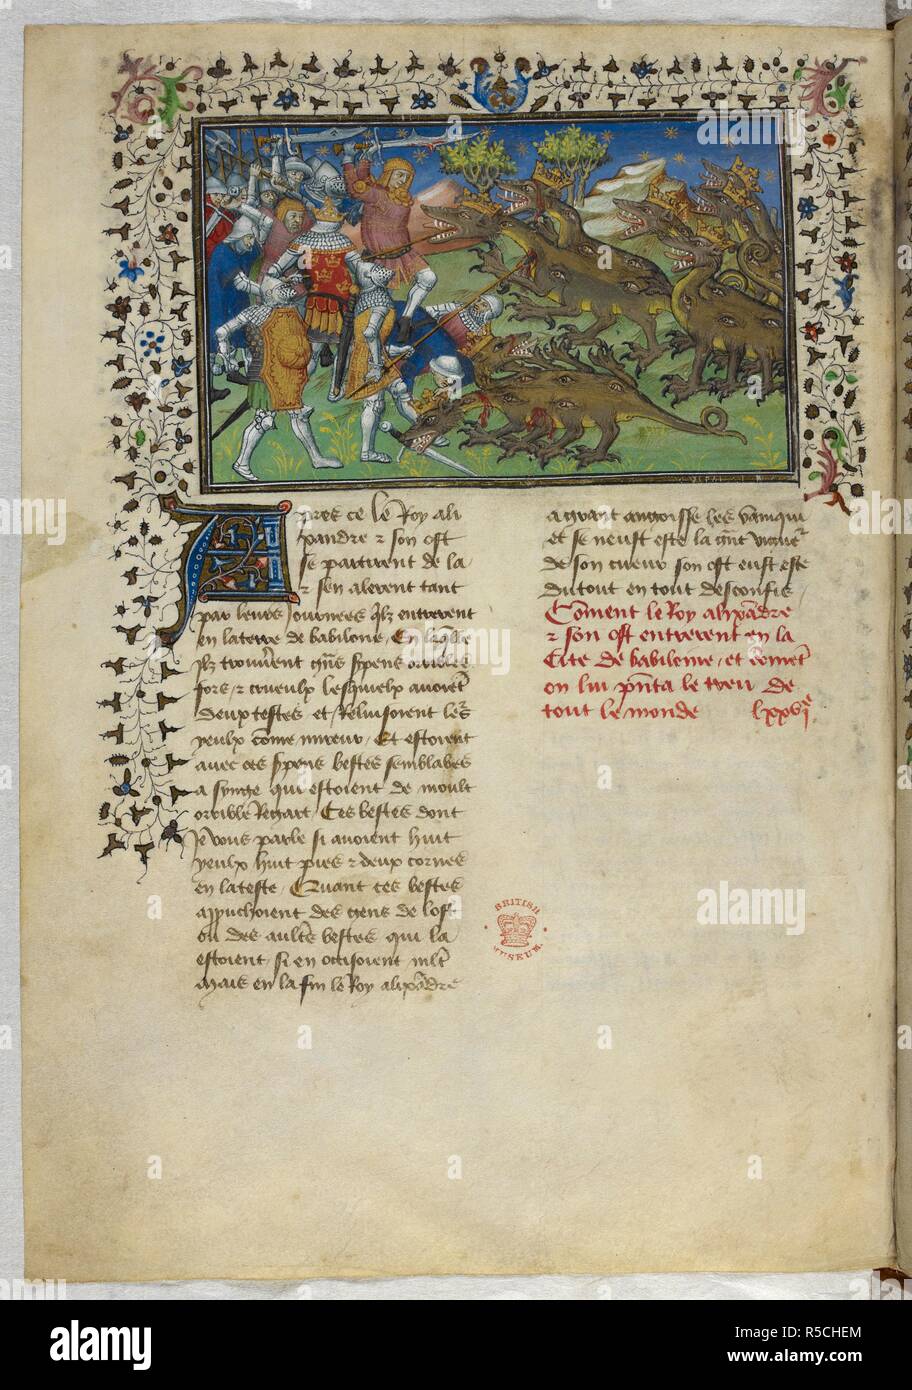 Apres ce le Roy ali
xandre et son ost
se partirent de la
et sen alerent tant
par leurs Journees qlz entrerent
en la terre de babiloine, En laqlle
ilz trouverent gns serpens orribles
fors, et crueulx lesquelx avoient
deux testes et Reluisoient leurs
yeulx come mireur, Et estoient
avec ces serpens bestes semblables
a synge qui estoient de moult
orrible Regart, Ces bestes dont
Je vous parle si avoient huit
yeulx huit pies et deux cornes
en la teste, Quant ces bestes
apuchoient des gens de lost
ou des aultres bestes qui la
estoient, si en occisoient mlt
Mais en la fin le Roy alixādre
a grant angoisse les vainqui
et se neust este la gnt vigueur
de son cueur son ost eust este
du tout en tout desconfis,
Coment le Roy alixādre
et son ost entrerent en la
Cite de babiloine, et comet
on lui pnta le treu de
tout le monde lxxvi
BRITISH
MUSEUM
alamy
alamy
alamy
a
a
a
a
a
alamy
Image ID: R5CHEM
www.alamy.com